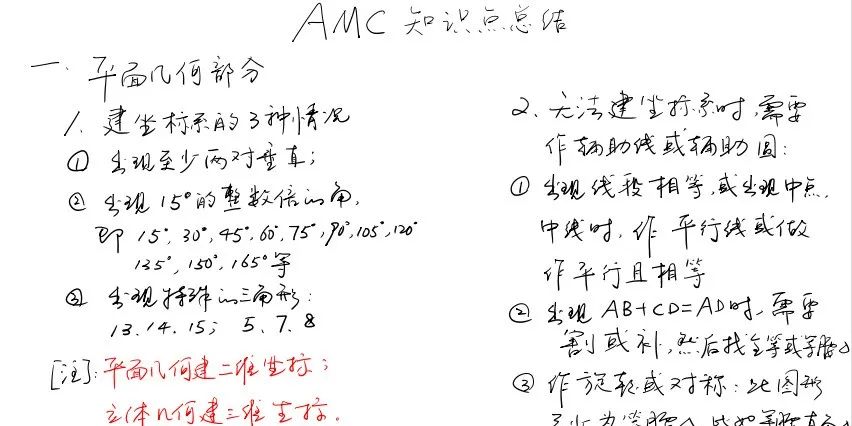 AMC 知识点总结
一. 平面几何部分
1. 建坐标系的3种情况
① 出现至少两对垂直;
② 出现15°的整数倍的角,
即 15°, 30°, 45°, 60°, 75°, 90°, 105°, 120°
135°, 150°, 165° 等
③ 出现特殊的三角形:
13.14.15; 5、7、8
[注]: 平面几何建二维坐标;
立体几何建三维坐标.
2、无法建坐标系时, 需要
作辅助线或辅助圆:
① 出现线段相等, 或出现中点,
中线时, 作平行线或做
作平行且相等
② 出现 AB+CD=AD时, 需要
割或补, 然后找全等或等腰△
③ 作旋转或对称: 此图形